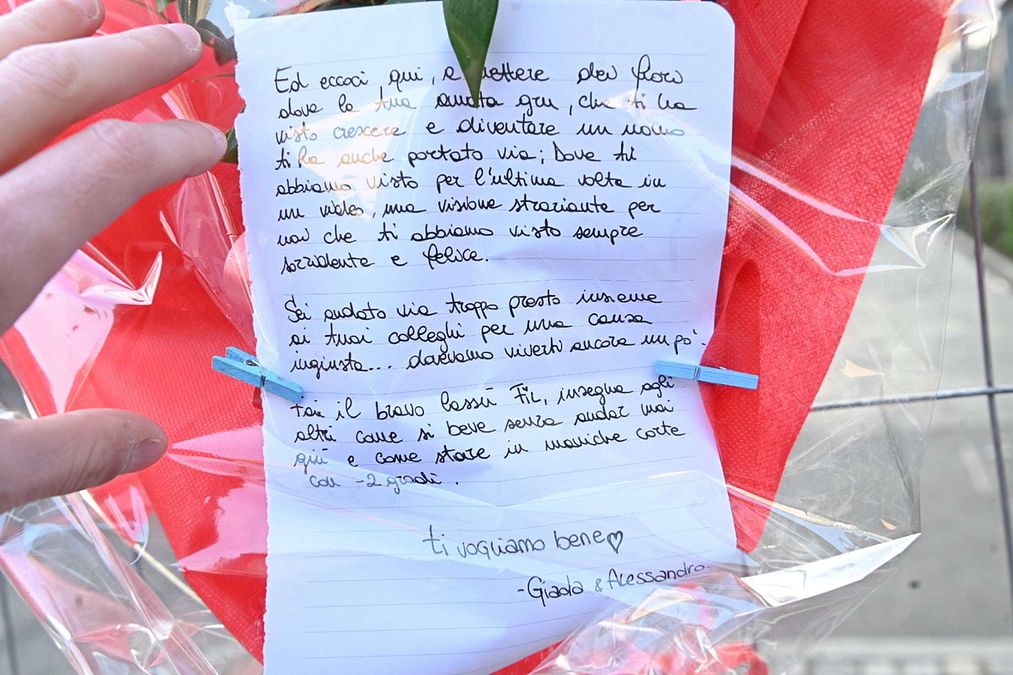 Ed eccoci qui, a mettere dei fiori
dove la tua amata gru, che ti ha
visto crescere e diventare un uomo
ti ha anche portato via; Dove ti
abbiamo visto per l'ultima volta in
un video, una visione straziante per
noi che ti abbiamo visto sempre
sorridente e felice.
Sei andato via troppo presto insieme
ai tuoi colleghi per una causa
ingiusta... dovevamo viverti ancora un po'.
Fai il bravo lassù Fil, insegna agli
altri come si beve senza andar mai
giù e come stare in maniche corte
con -2 gradi.
ti vogliamo bene♡
-Giada & Alessandro.